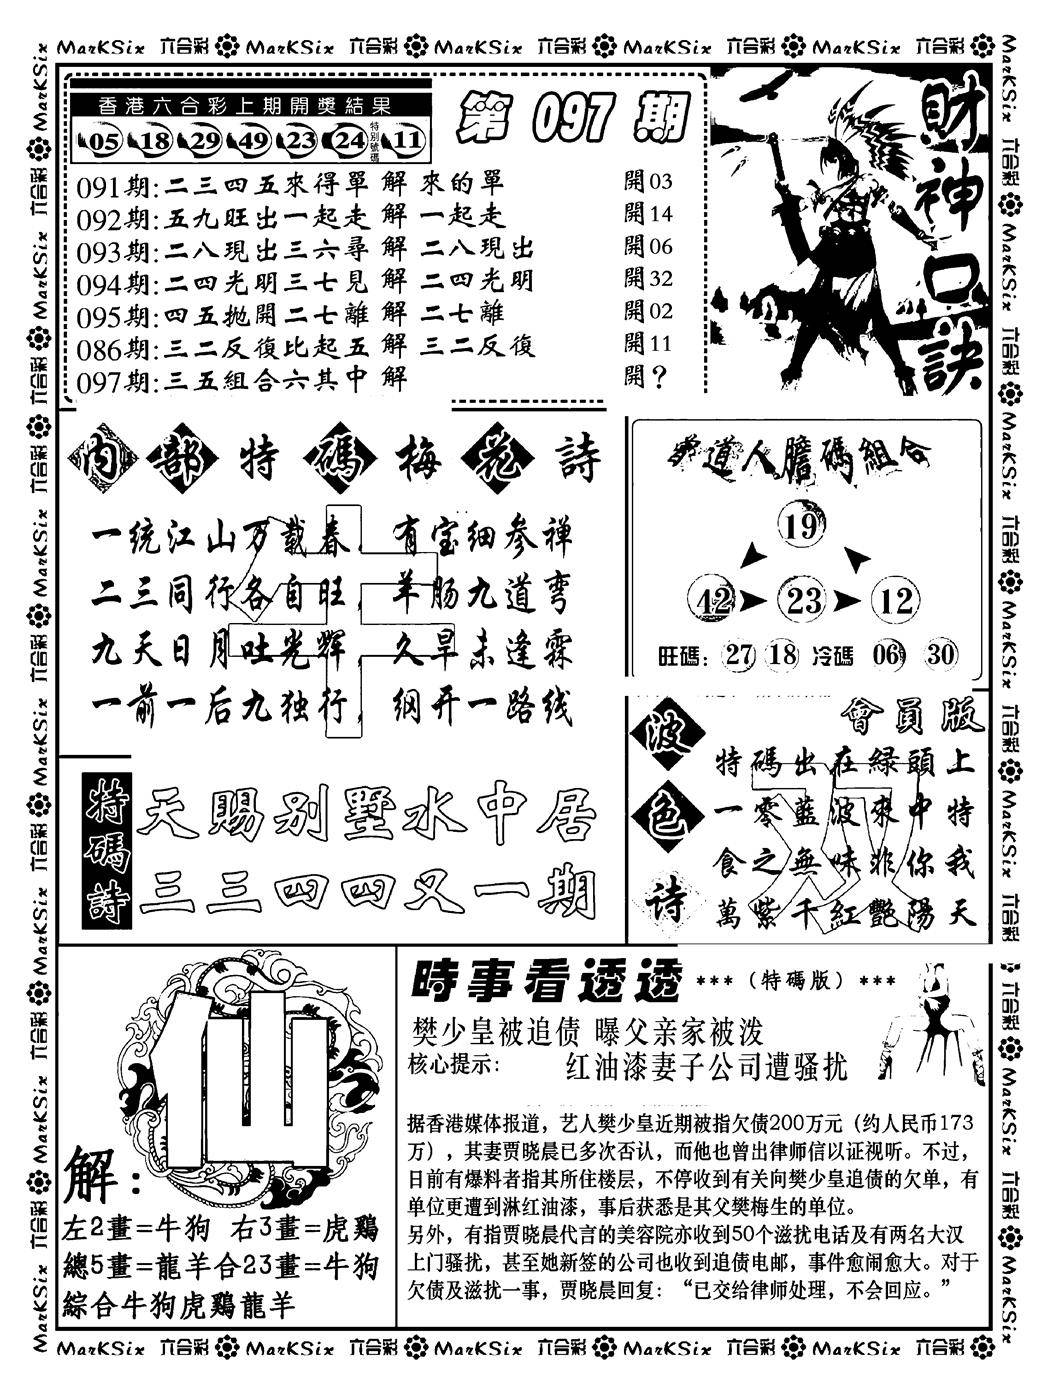 MarKSix 六合彩 MarKSix 六合彩 MarKSix 六合彩 MarKSix 六合彩 MarKSix 六合彩
香港六合彩上期開獎結果
05 18 29 49 23 24 特別號碼 11
第 097 期
財神口訣
091期:二三四五來得單 解 來的單 開03
092期:五九旺出一起走 解 一起走 開14
093期:二八現出三六尋 解 二八現出 開06
094期:二四光明三七見 解 二四光明 開32
095期:四五拋開二七離 解 二七離 開02
086期:三二反復比起五 解 三二反復 開11
097期:三五組合六其中 解 開?
內部特碼梅花詩
一统江山万载春,有宝细参禅
二三同行各自旺,羊肠九道弯
九天日月吐光辉,久旱未逢霖
一前一后九独行,纲开一路线
道人膽碼組合
19
42 23 12
旺碼: 27 18 冷碼 06 30
波色诗
會員版
特碼出在綠頭上
一零藍波來中特
食之無味非你我
萬紫千紅艷陽天
特碼詩
天賜別墅水中居
三三四四又一期
仙
解:
左2畫=牛狗 右3畫=虎鷄
總5畫=龍羊合23畫=牛狗
綜合牛狗虎鷄龍羊
時事看透透 ***(特碼版)***
樊少皇被追债 曝父亲家被泼
核心提示: 红油漆妻子公司遭骚扰
据香港媒体报道，艺人樊少皇近期被指欠债200万元（约人民币173
万），其妻贾晓晨已多次否认，而他也曾出律师信以证视听。不过，
日前有爆料者指其所住楼层，不停收到有关向樊少皇追债的欠单，有
单位更遭到淋红油漆，事后获悉是其父樊梅生的单位。
另外，有指贾晓晨代言的美容院亦收到50个滋扰电话及有两名大汉
上门骚扰，甚至她新签的公司也收到追债电邮，事件愈闹愈大。对于
欠债及滋扰一事，贾晓晨回复：“已交给律师处理，不会回应。”
MarKSix 六合彩 MarKSix 六合彩 MarKSix 六合彩 MarKSix 六合彩 MarKSix 六合彩